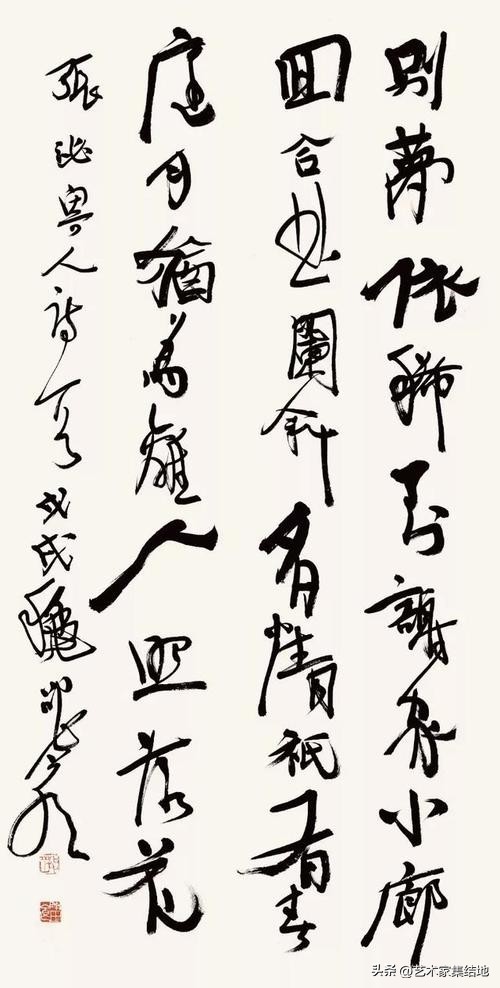 别夢依稀到謝家小廊
回合曲闌斜多情祇有春
庭月猶為離人照落花
張泌寄人詩一首戊戌龝
头条 @艺术家集结地